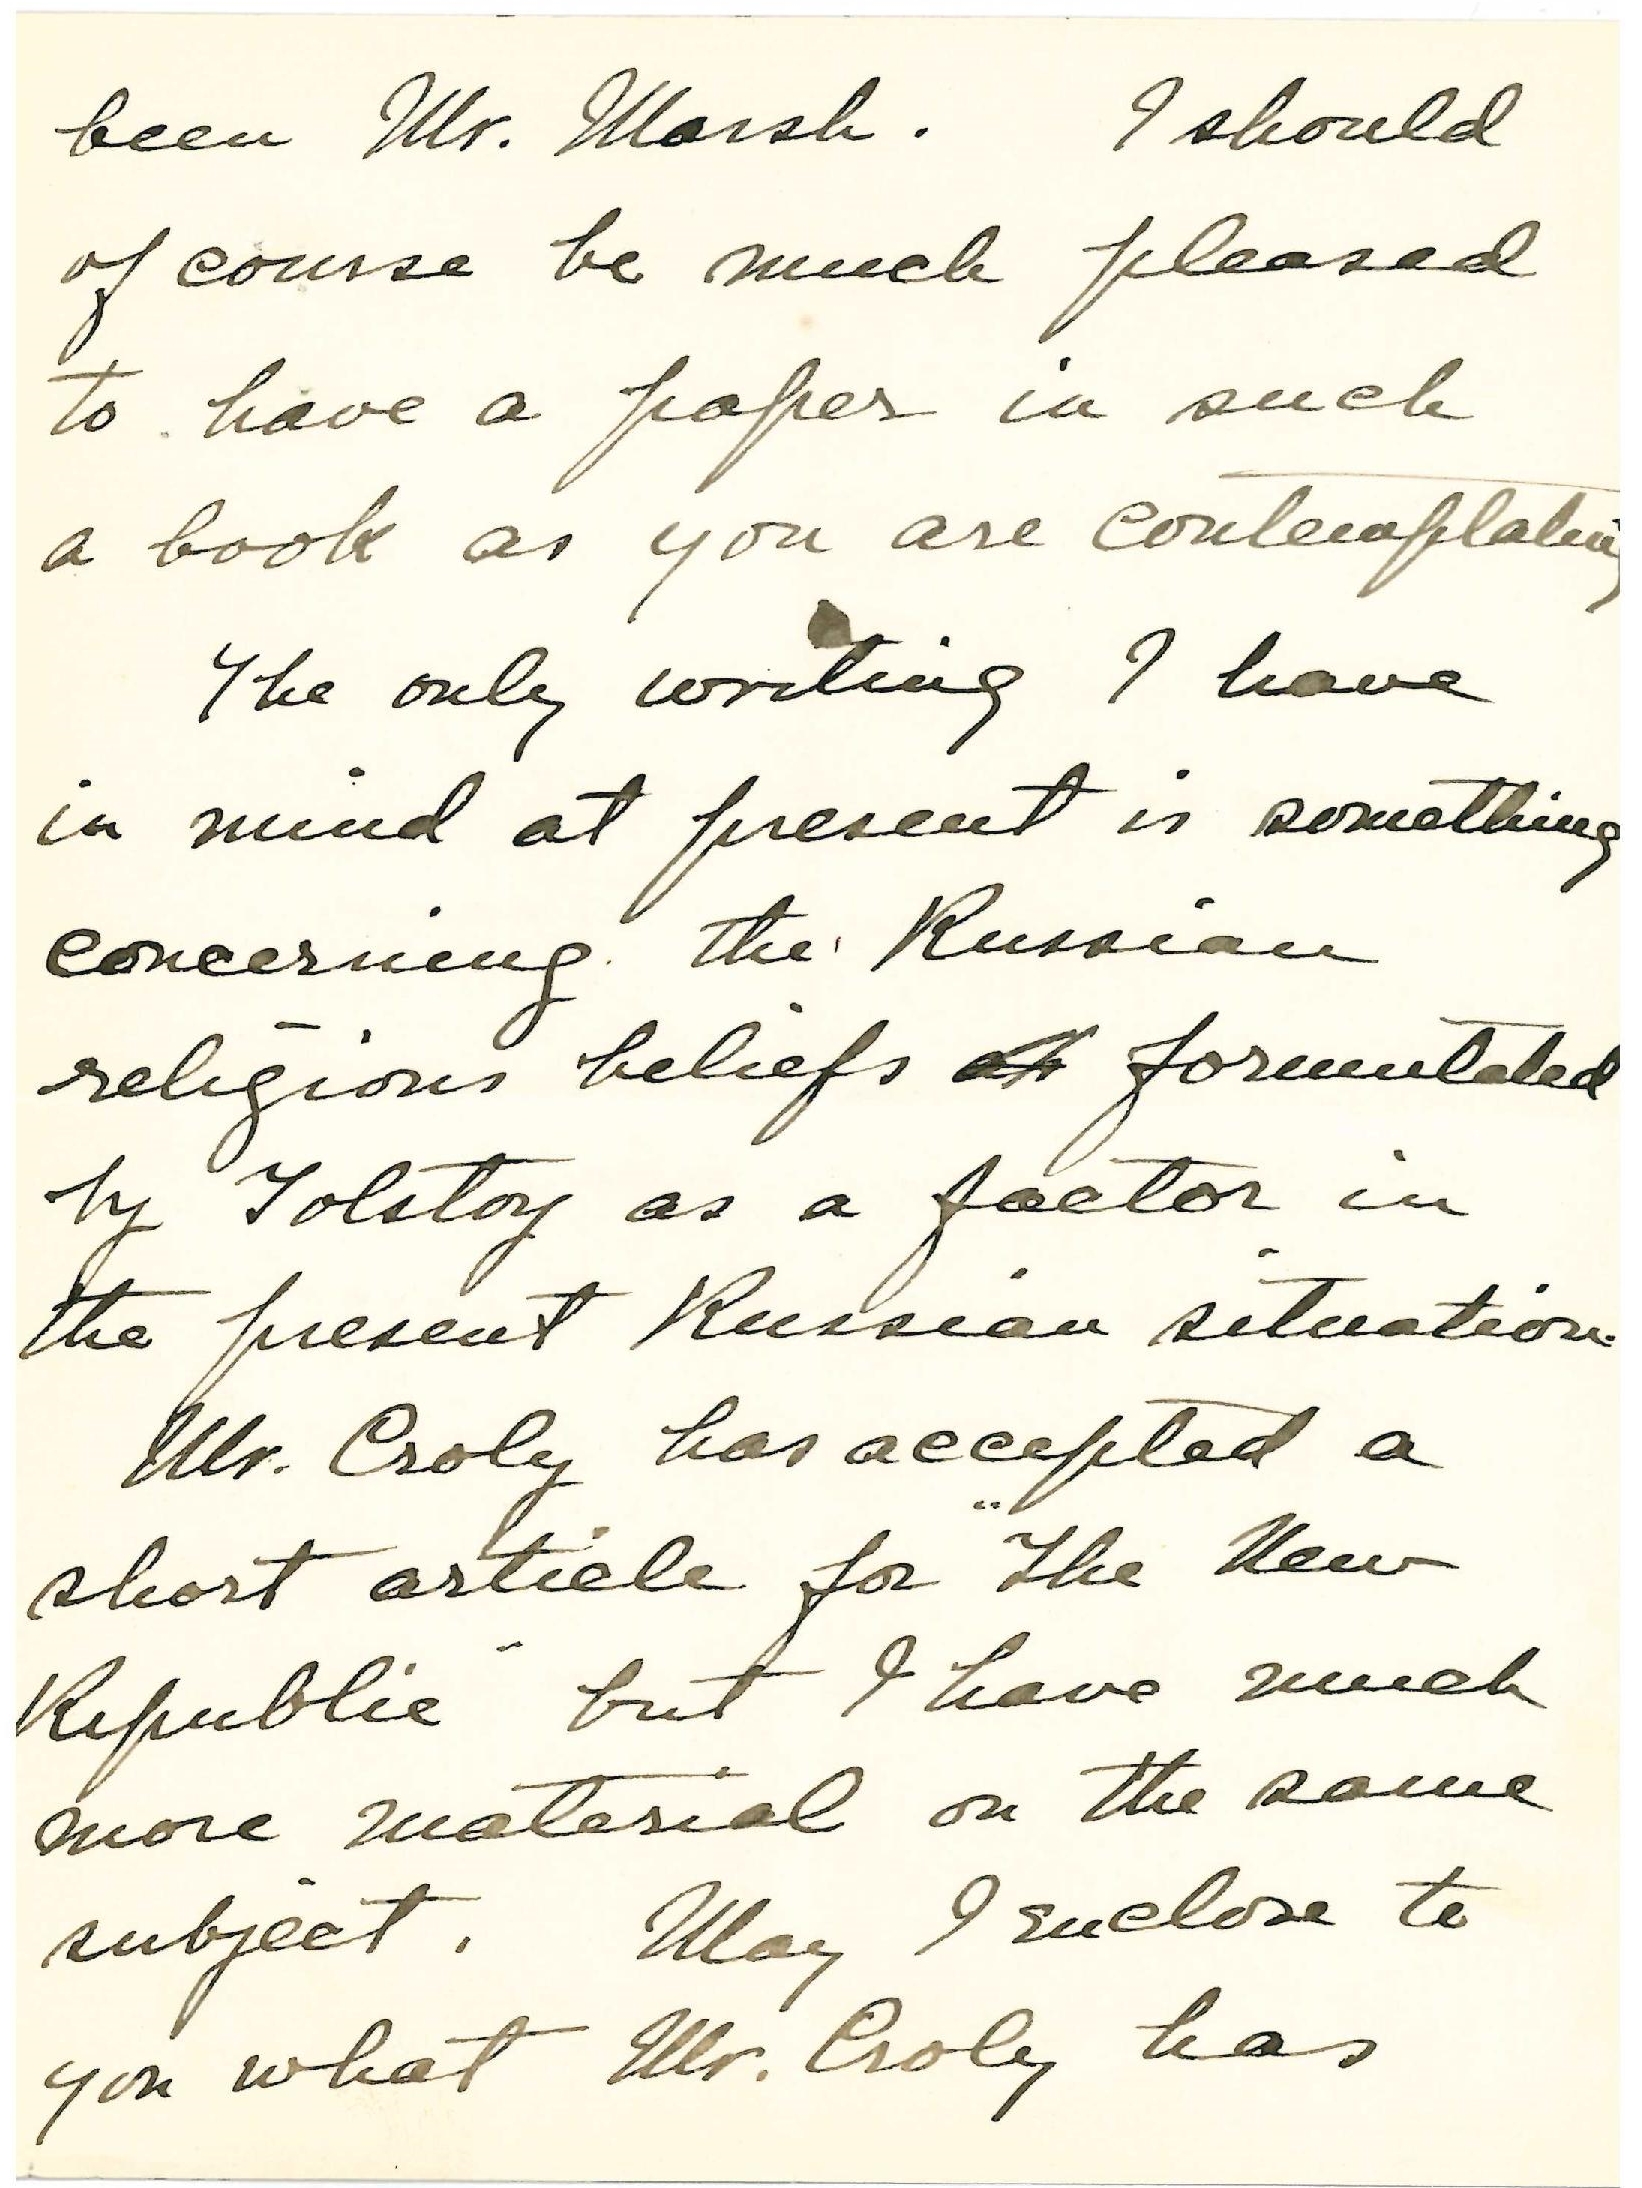 been Mr. Marsh. I should
of course be much pleased
to have a paper in such
a book as you are contemplating
The only writing I have
in mind at present is something
concerning the Russian
religious beliefs formulated
by Tolstoy as a factor in
the present Russian situation.
Mr. Croly has accepted a
short article for "The New
Republic" but I have much
more material on the same
subject. May I enclose to
you what Mr. Croly has